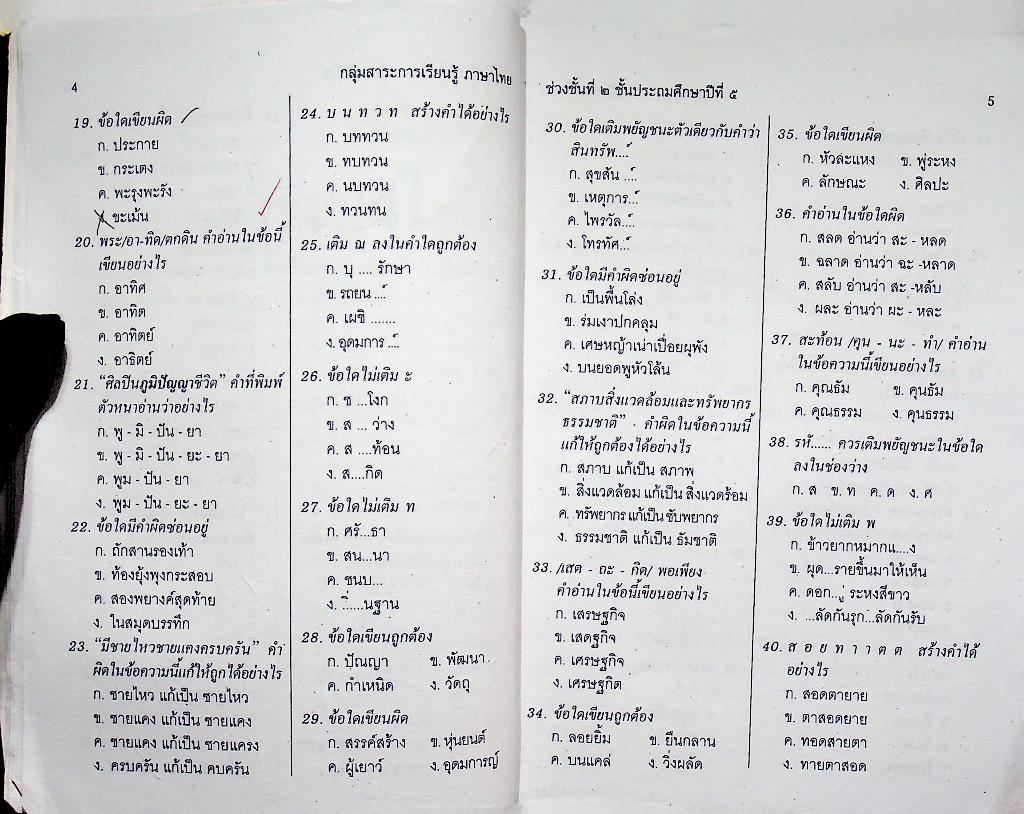 4
กลุ่มสาระการเรียนรู้ ภาษาไทย
19. ข้อใดเขียนผิด
ก. ประกาย
ข. กระเตง
ค. พะรุงพะรัง
ง. ขะเม้น
20. พระ/อา-ทิด/ตกดิน คำอ่านในข้อนี้
เขียนอย่างไร
ก. อาทิศ
ข. อาทิต
ค. อาทิตย์
ง. อาธิตย์
21. “ศิลปินภูมิปัญญาชีวิต” คำที่พิมพ์
ตัวหนาอ่านว่าอย่างไร
ก. พู - มิ - ปัน - ยา
ข. พู - มิ - ปัน - ยะ - ยา
ค. พูม - ปัน - ยา
ง. พูม - ปัน - ยะ - ยา
22. ข้อใดมีคำผิดซ่อนอยู่
ก. ถักสานรองเท้า
ข. ท้องยุ้งพุงกระสอบ
ค. สองพยางค์สุดท้าย
ง. ในสมุดบรรทึก
23. “มีชายไหวชายแคงครบครัน” คำ
ผิดในข้อความนี้แก้ให้ถูกได้อย่างไร
ก. ชายไหว แก้เป็น ซายไหว
ข. ชายแคง แก้เป็น ซายแคง
ค. ชายแคง แก้เป็น ชายแครง
ง. ครบครัน แก้เป็น คบครัน
24. บ น ท ว ท สร้างคำได้อย่างไร
ก. บททวน
ข. ทบทวน
ค. นบทวน
ง. ทวนทน
25. เติม ณ ลงในคำใดถูกต้อง
ก. บุ .... รักษา
ข. รถยน ...์
ค. เผชิ .......
ง. อุดมการ ...์
26. ข้อใดไม่เติม ะ
ก. ช ...โงก
ข. ส ... ว่าง
ค. ส ....ท้อน
ง. ส....กิด
27. ข้อใดไม่เติม ท
ก. ศรั...ธา
ข. สน...นา
ค. ชนบ...
ง. ิ่......นฐาน
28. ข้อใดเขียนถูกต้อง
ก. ปัณญา ข. พัฒนา
ค. กำเหนิด ง. วัดถุ
29. ข้อใดเขียนผิด
ก. สรรค์สร้าง ข. หุ่นยนต์
ค. ผู้เยาว์ ง. อุดมการญ์
ช่วงชั้นที่ ๒ ชั้นประถมศึกษาปีที่ ๕
5
30. ข้อใดเติมพยัญชนะตัวเดียวกับคำว่า
สินทรัพ...์
ก. สุขสัน ...์
ข. เหตุการ...์
ค. ไพรวัล...์
ง. โทรทัศ...์
31. ข้อใดมีคำผิดซ่อนอยู่
ก. เป็นพื้นโล่ง
ข. ร่มเงาปกคลุม
ค. เศษหญ้าเน่าเปื่อยผุพัง
ง. บนยอดพูหัวโล้น
32. “สภาบสิ่งแวดล้อมและทรัพยากร
ธรรมชาติ” คำผิดในข้อความนี้
แก้ให้ถูกต้องได้อย่างไร
ก. สภาบ แก้เป็น สภาพ
ข. สิ่งแวดล้อม แก้เป็น สิ่งแวดร้อม
ค. ทรัพยากร แก้เป็น ซับพยากร
ง. ธรรมชาติ แก้เป็น ธัมชาติ
33. /เสต - ถะ - กิด/ พอเพียง
คำอ่านในข้อนี้เขียนอย่างไร
ก. เสรษฐกิจ
ข. เสดฐกิจ
ค. เศรษฐกิจ
ง. เศรษฐกิต
34. ข้อใดเขียนถูกต้อง
ก. ลอยยิ้ม ข. ยืนกลาน
ค. บนแคล่ ง. วิ่งผลัด
35. ข้อใดเขียนผิด
ก. หัวละแหง ข. พู่ระหง
ค. ลักษณะ ง. ศิลปะ
36. คำอ่านในข้อใดผิด
ก. สลด อ่านว่า สะ - หลด
ข. ฉลาด อ่านว่า ฉะ -หลาด
ค. สลับ อ่านว่า สะ -หลับ
ง. ผละ อ่านว่า ผะ - หละ
37. สะท้อน /คุน - นะ - ทำ/ คำอ่าน
ในข้อความนี้เขียนอย่างไร
ก. คุณธัม ข. คุนธัม
ค. คุณธรรม ง. คุนธรรม
38. รหั...... ควรเติมพยัญชนะในข้อใด
ลงในช่องว่าง
ก. ส ข. ท ค. ด ง. ศ
39. ข้อใดไม่เติม พ
ก. ข้าวยากหมากแ....ง
ข. ผุด...รายขึ้นมาให้เห็น
ค. ดอก...ู่ ระหงสีขาว
ง. ...ลัดกันรุก...ลัดกันรับ
40. ส อ ย ท า า ต ต สร้างคำได้
อย่างไร
ก. สอดตายาย
ข. ตาสอดยาย
ค. ทอดสายตา
ง. ทายตาสอด